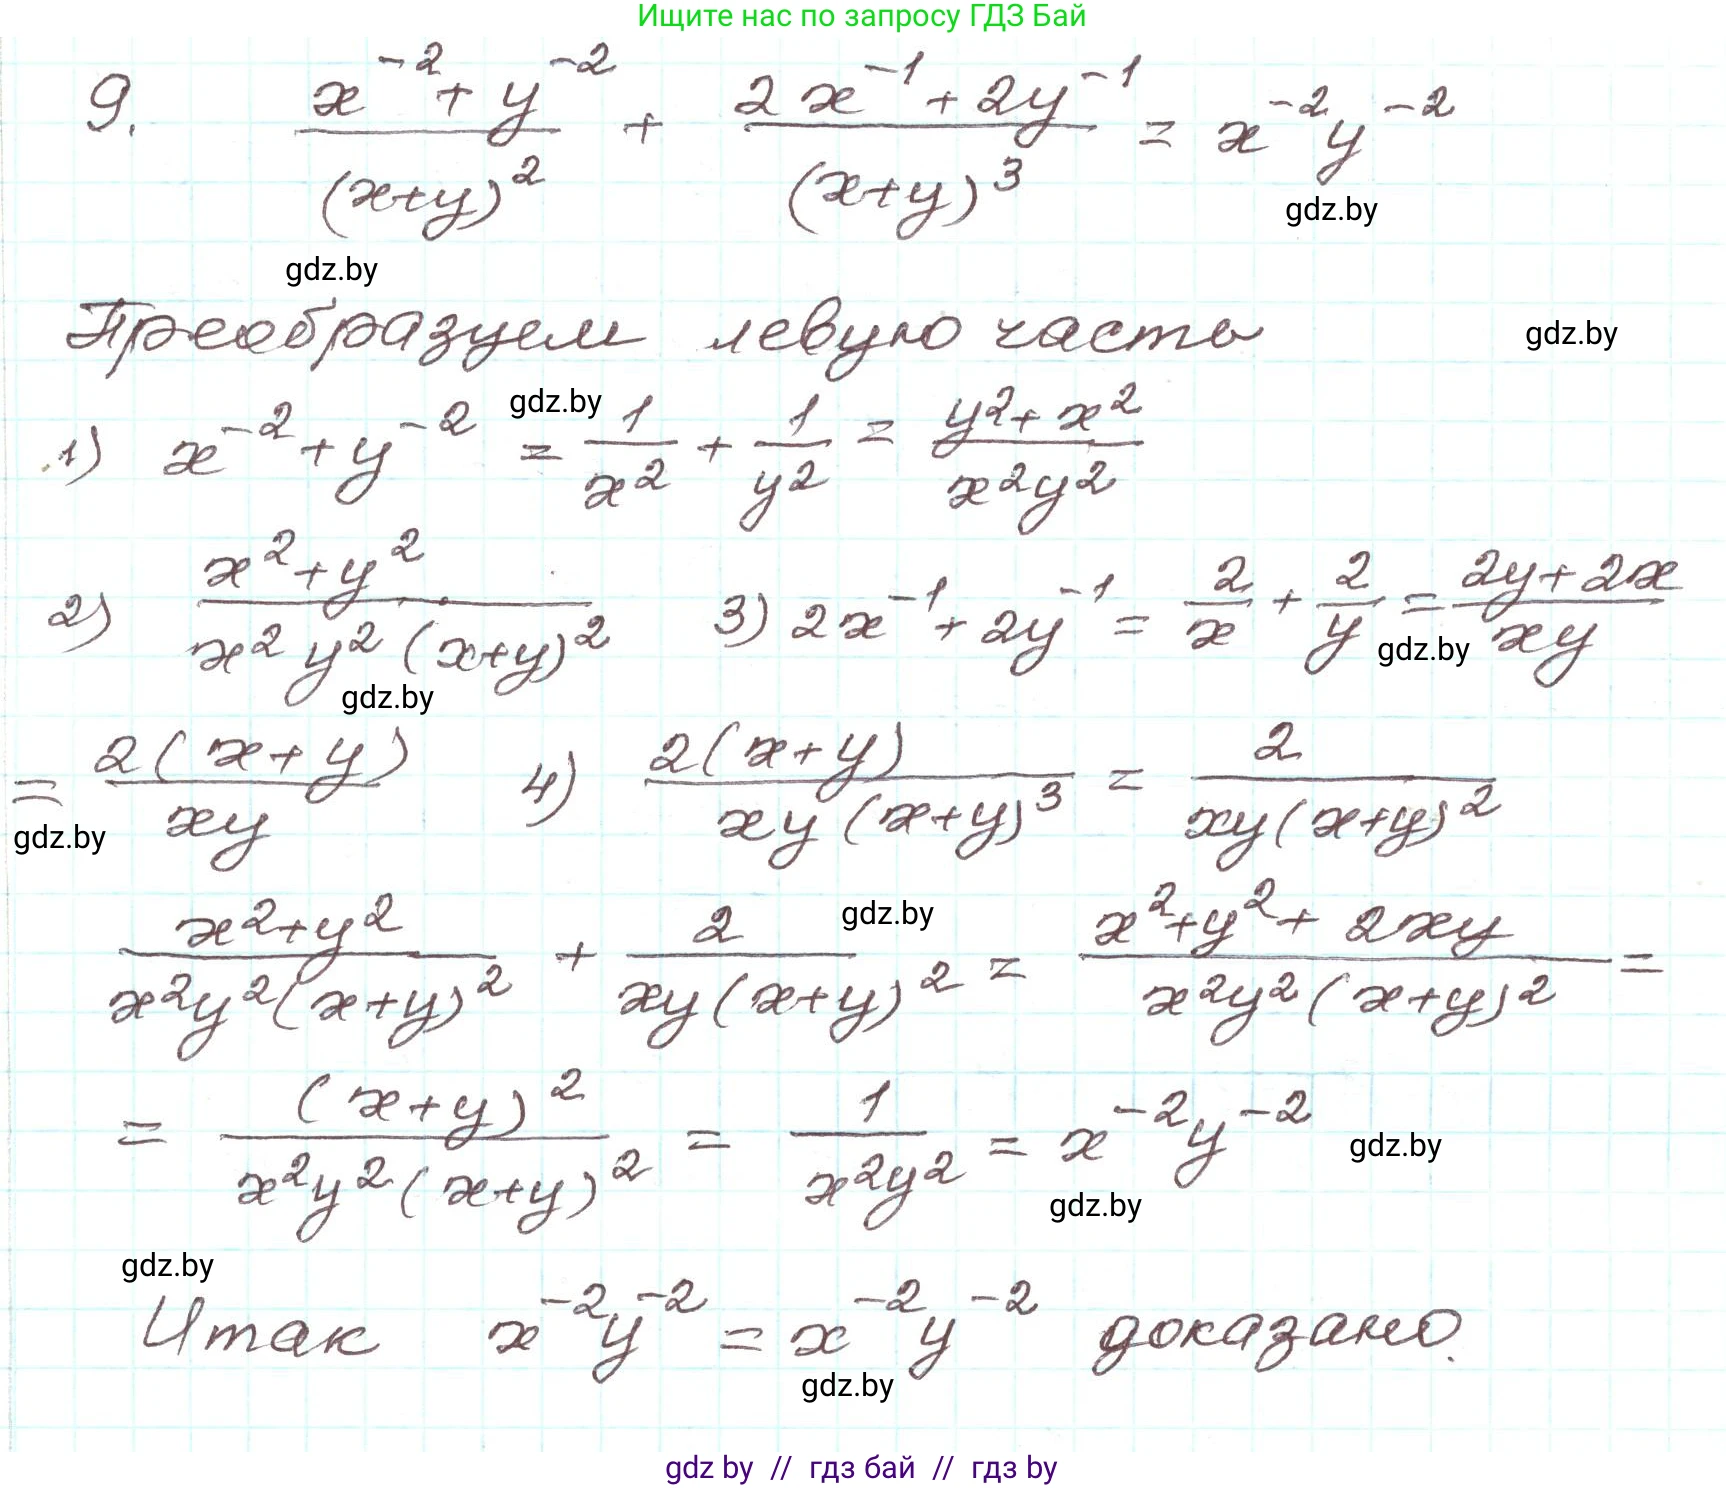 Ищите нас по запросу ГДЗ Бай
9. (x^-2 + y^-2)/(x+y)^2 + (2x^-1 + 2y^-1)/(x+y)^3 = x^-2 y^-2
gdz.by
gdz.by
Преобразуем левую часть gdz.by
gdz.by
1) x^-2 + y^-2 = 1/x^2 + 1/y^2 = (y^2 + x^2)/(x^2y^2)
2) (x^2 + y^2)/(x^2 y^2 (x+y)^2) 3) 2x^-1 + 2y^-1 = 2/x + 2/y = (2y + 2x)/(xy)
gdz.by
gdz.by
= 2(x+y)/(xy) 4) 2(x+y)/(xy(x+y)^3) = 2/(xy(x+y)^2)
gdz.by
gdz.by
(x^2+y^2)/(x^2y^2(x+y)^2) + 2/(xy(x+y)^2) = (x^2+y^2+2xy)/(x^2y^2(x+y)^2) =
= (x+y)^2/(x^2y^2(x+y)^2) = 1/(x^2y^2) = x^-2 y^-2 gdz.by
gdz.by
gdz.by
Итак x^-2 y^-2 = x^-2 y^-2 доказано.
gdz.by
gdz by // гдз бай // гдз by